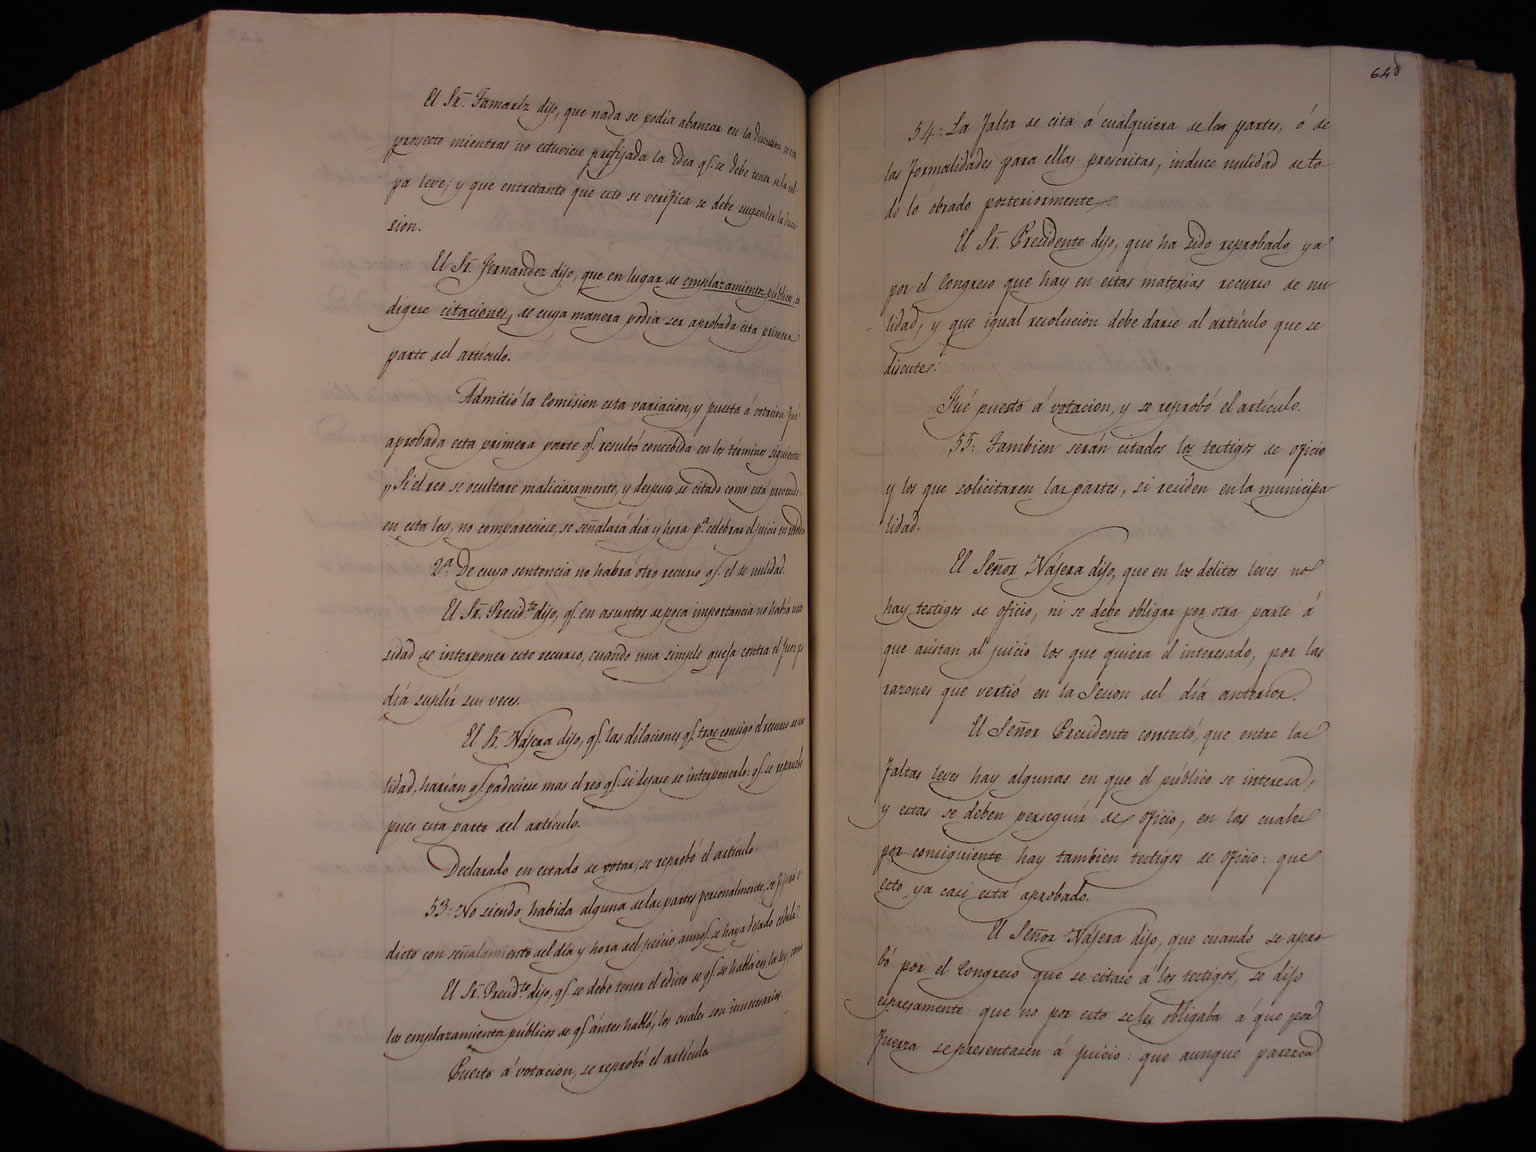 El Sr. Tamaríz dijo, que nada se podia abanzar en la discusion de este
proyecto mientras no estuviese prefijada la idea qe. se debe tener de la cul-
pa leve; y que entretanto que esto se verifica se debe suspender la discu-
sion.
El Sr. Fernandez dijo, que en lugar de emplazamientos públicos se
digese citaciones, de cuya manera podia ser aprobada esta primera
parte del artículo.
Admitió la Comision esta variacion, y puesta á votacion fué
aprobada esta primera parte qe. resultó concebida en los términos siguientes
" Si el reo se ocultare maliciosamente, y despues de citado como está prevenido
en esta ley, no compareciese, se señalará dia y hora pa. celebrar el juicio en rebeldia
2a. De cuya sentencia no habrá otro recurso qe. el de nulidad.
El Sr. Presidte. dijo, qe. en asuntos de poca importancia no habia nece-
sidad de interponer este recurso, cuando una simple queja contra el Juez po-
día suplír sus veces.
El Sr. Najera dijo, qe. las dilaciones qe. trae consigo el recurso de nu-
lidad, harían qe. padeciese mas el reo qe. si dejase de interponerlo: qe. se repruebe
pues esta parte del artículo.
Declarado en estado de votar, se reprobó el artículo.
53: No siendo habida alguna de las partes personalmente, se fijará e-
dicto con señalamiento del día y hora del juicio aunqe. se haya dejado cedula.
El Sr. Presidte. dijo, qe. se debe tener el edicto de qe. se habla en la ley, como
los emplazamientos públicos de qe. ántes habló, los cuales son innecesarios.
Puesto á votacion, se reprobó el artículo
648
54: La falta de cita á cualquiera de las partes, ó de
las formalidades para ellas prescritas, induce nulidad de to-
do lo obrado posteriormente.
El Sr. Presidente dijo, que ha sido reprobado ya
por el Congreso que hay en estas materias recurso de nu-
lidad, y que igual resolucion debe darse al artículo que se
discute.
Fué puesto á votacion, y se reprobó el artículo.
55: Tambien serán citados los testigos de oficio
y los que solicitaren las partes, si residen en la municipa-
lidad.
El Señor Najera dijo, que en los delitos leves no
hay testigos de oficio, ni se debe obligar por otra parte á
que asistan al juicio los que quiera el interesado, por las
razones que vertió en la Sesion del día anterior.
El Señor Presidente contestó, que entre las
faltas leves hay algunas en que el público se interesa,
y estas se deben perseguir de oficio, en las cuales
por consiguiente hay tambien testigos de oficio: que
esto ya casi está aprobado.
El Señor Najera dijo, que cuando se apro-
bó por el Congreso que se citase á los testigos, se dijo
espresamente que no por esto se les obligaba á que por
fuerza se presentasen á juicio: que aunque parezca